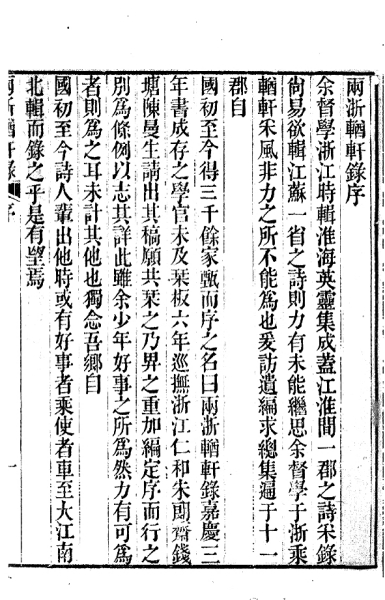 兩浙輶軒錄序
余督學浙江時輯淮海英靈集成蓋江淮間一郡之詩采錄
尙易欲輯江蘇一省之詩則力有未能繼思余督學于浙乘
輶軒采風非力之所不能爲也爰訪遺編求總集遍于十一
郡自
國初至今得三千餘家甄而序之名曰兩浙輶軒錄嘉慶三
年書成存之學官未及栞板六年巡撫浙江仁和朱朗齋錢
塘陳曼生請出其稿願共栞之乃畀之重加編定序而行之
別爲條例以志其詳此雖余少年好事之所爲然力有可爲
者則爲之耳未計其他也獨念吾鄉自
國初至今詩人輩出他時或有好事者乘使者車至大江南
北輯而錄之乎是有望焉
兩浙輶軒錄 序 一